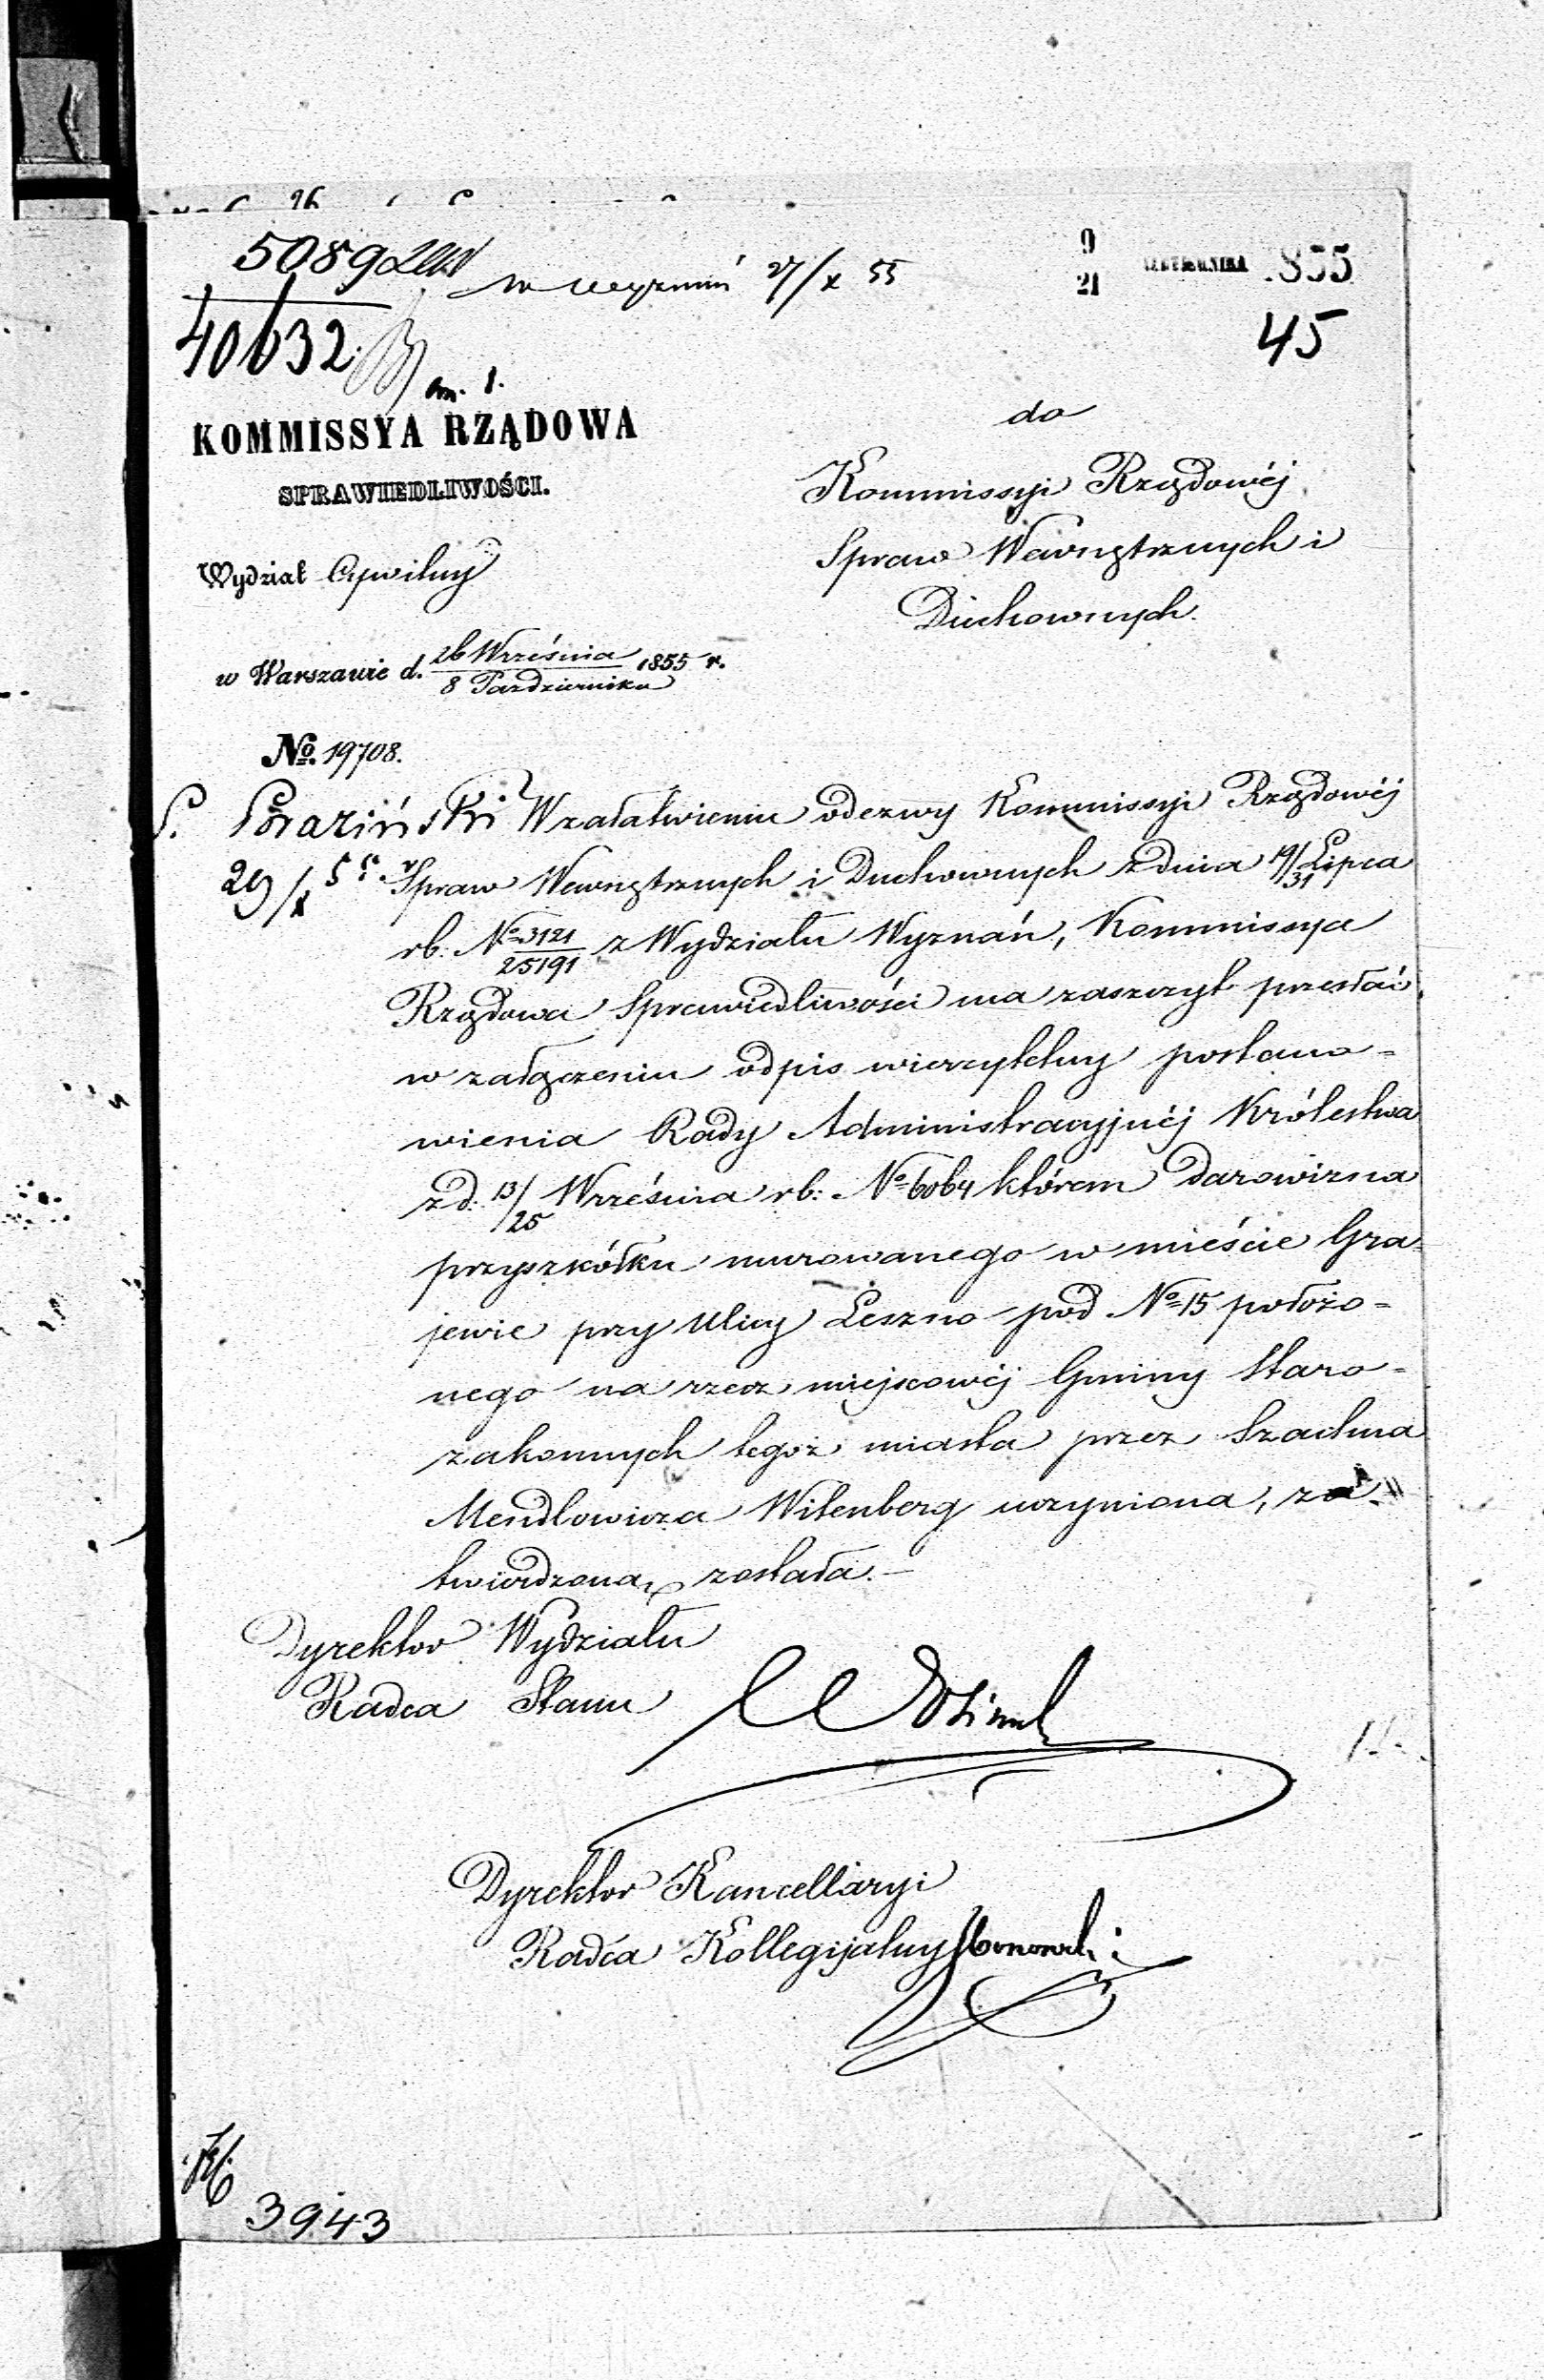 5089
40632
27/X 55
9
21
PAŹDZIERNIKA 1855
45
KOMMISSYA RZĄDOWA
SPRAWIEDLIWOŚCI.
Wydział Cywilny
w Warszawie d. 26 Września / 8 Października 1855 r.
No. 19708.
do
Kommissyi Rządowéj
Spraw Wewnętrznych i
Duchownych.
P. Poraziński
29/X 55
W załatwieniu odezwy Kommissyi Rządowéj
Spraw Wewnętrznych i Duchownych z dnia 19/31 Lipca
rb. No 3121/25191 z Wydziału Wyznań, Kommissya
Rządowa Sprawiedliwości ma zaszczyt przesłać
w załączeniu odpis wierzytelny postano=
wienia Rady Administracyjnéj Królestwa
z d. 13/25 Września rb: No 6064 którem darowizna
przyszkółku murowanego w mieście Gra=
jewie przy Ulicy Leszno pod No 15 położo=
nego na rzecz miejscowéj Gminy Staro=
zakonnych tegoż miasta przez Szachna
Mendlowicza Witenberg uczyniona, za=
twierdzona, została.—
Dyrektor Wydziału
Radca Stanu
Dyrektor Kancellaryi
Radca Kollegijalny
3943